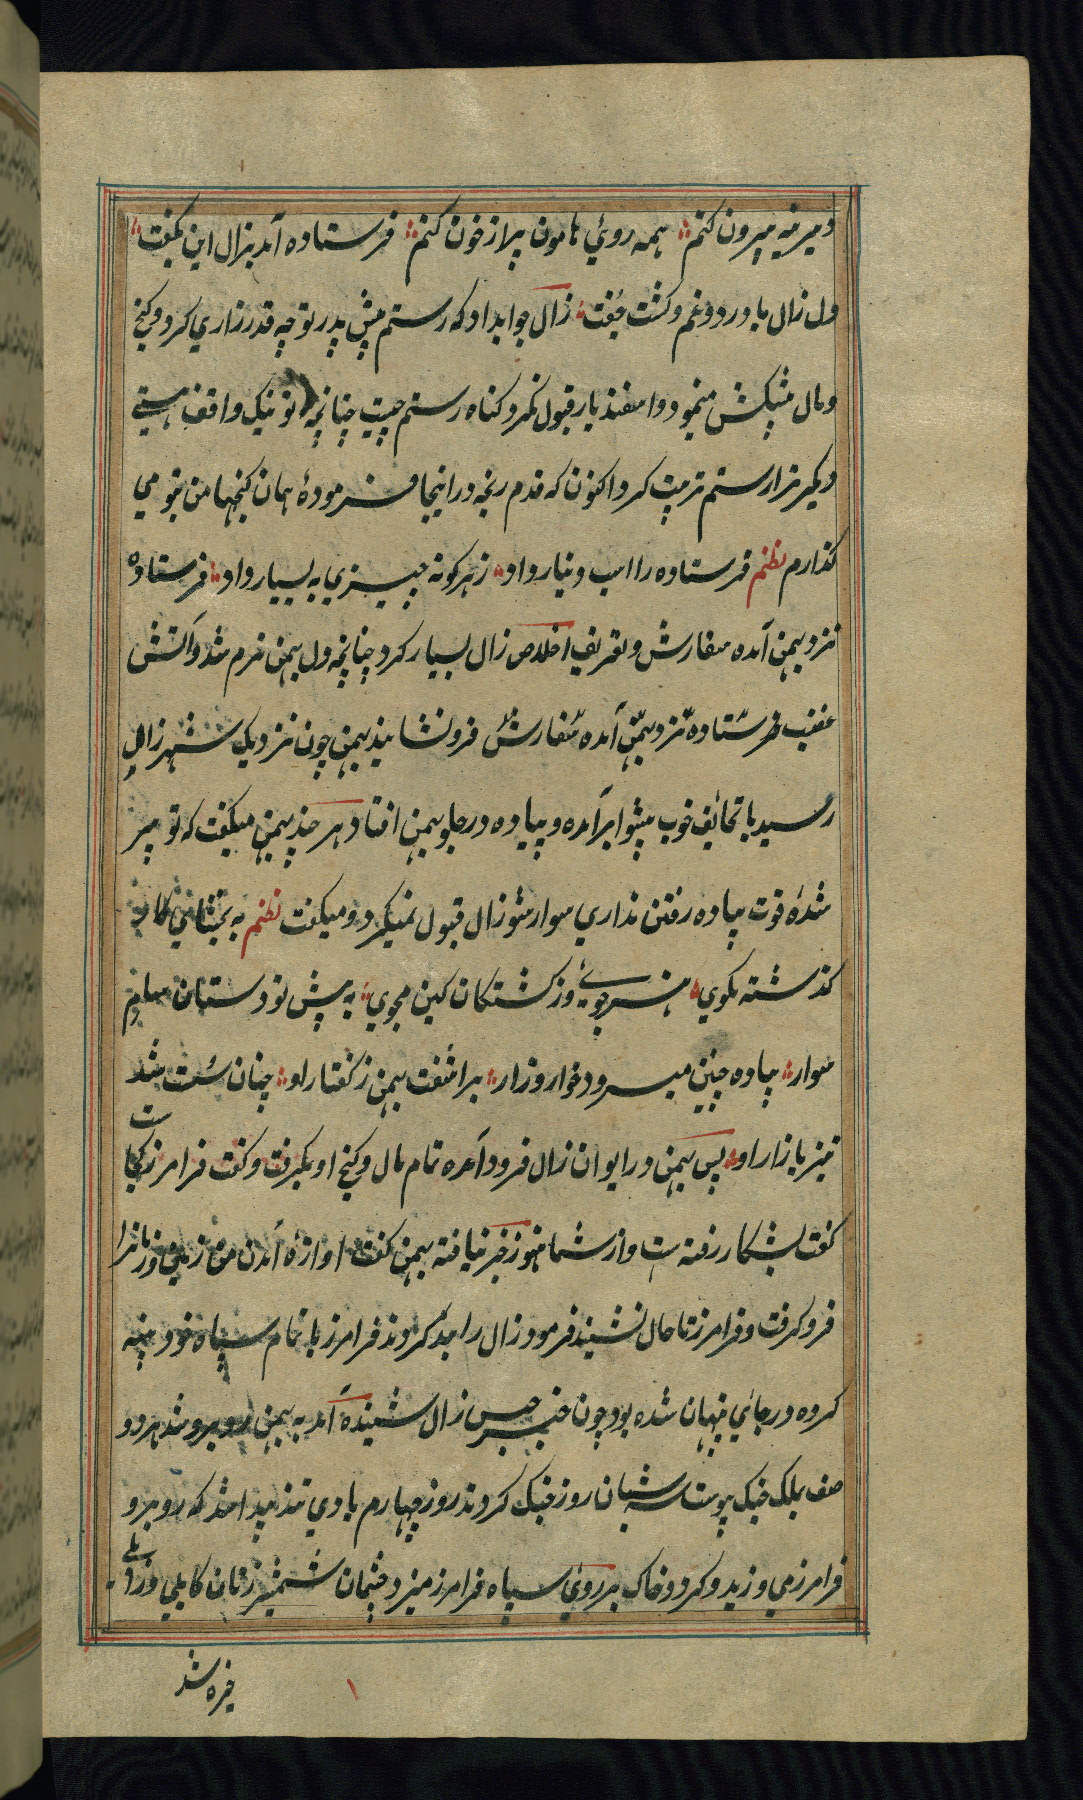 دمیرنه بیرون کنم همه روئی هامون پر از خون کنم فرستاده آمد بزال این بگفت
دل زال با درد و غم گشت جفت زال جوابداد که رستم پیش پدر تو چه قدر زاری کرد و گنج
و مال پیشکش مینمود و اسفندیار قبول نکرد کناه رستم چیست چنانچه تو نیک واقف هستی
دیگر ترا رستم تربیت کرد اکنون که قدم رنجه در اینجا فرمودۀ همان گنجها من بتو می
کذارم نظم فرستاده را اسب و دینار داد ز هر کونه چیزی به بسیار داد فرستاده
نزد بهمن آمده سفارش و تعریف اخلاص زال بسیار کرد چنانچه دل بهمن نرم شد و آتش
غضب فرستاده نزد بهمن آمده سفارش فرو نشانید بهمن چون نزدیک شهر زال
رسید با تحائف خوب پیشوا برآمده و پیاده در جلو بهمن افتاد هر چند بهمن میگفت که تو پیر
شدۀ قوت پیاده رفتن نداری سوار شو زال قبول نمیکرد و میگفت نظم به بخشائی کار
کذشته مکوی هنر جوئی وز کشتکان کین مجوی به پیش تو دستان سام
سوار پیاده چنین میرود خوار و زار برآشفت بهمن ز گفتار او چنان سست شد
تیز بازار او پس بهمن در ایوان زال فرود آمده تمام مال و گنج او بگرفت و گفت فرامرز کجا ست
گفت بشکار رفته است و از شما هنوز خبر نیافته بهمن گفت آوازۀ آمدن من زمین و زمانرا
فرو کرفت و فرامرز تا حال نشنید فرمود زال را بند کردند فرامرز با تمام سپاه خود بنه
کرده در جائی پنهان شده بود چون خبر حبس زال شنیده آمد به بهمن روبرو شد هر دو
صف بلک جنک پیوست سه شبان روز جنک کردند روز چهارم بادی تند پیدا شد که روبرو
فرامرز می وزید و کرد و خاک بر روئی سپاه فرامرز میزد چشمان شمشیر زنان کابلی و زابلی
خیره شد